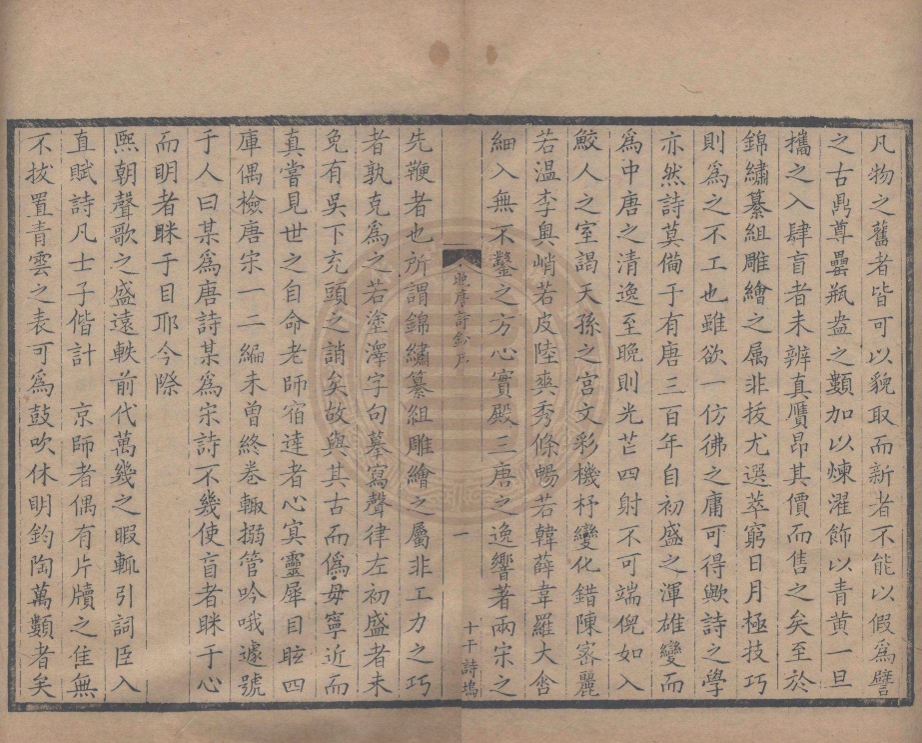 凡物之舊者皆可以貌取而新者不能以假爲譬
之古鼎尊罍瓶盎之類加以煉濯飾以青黃一旦
攜之入肆盲者未辨真贗昂其價而售之矣至於
錦繡纂組雕繪之属非拔尤選萃窮日月極技巧
則爲之不工也雖欲一仿彿之庸可得歟詩之學
亦然詩莫備于有唐三百年自初盛之渾雄變而
爲中唐之清逸至晚則光芒四射不可端倪如入
鮫人之室謁天孫之宮文彩機杼變化錯陳密麗
若温李奥峭若皮陸爽秀條暢若韓薛韋羅大含
細入無不鑿之方心寳殿三唐之逸響著兩宋之
晚唐詩鈔序
一
十千詩塢
先鞭者也所謂錦繡纂組雕繪之屬非工力之巧
者孰克爲之若塗澤字句摹寫聲律左初盛者未
免有吳下充頭之誚矣故與其古而僞毋寧近而
真嘗見世之自命老師宿達者心寘靈犀目眩四
庫偶檢唐宋一二編未曽終卷輙搦管吟哦遽號
于人曰某爲唐詩某爲宋詩不幾使盲者眯于心
而明者眯于目耶今際
熙朝聲歌之盛遠軼前代萬幾之暇輒引詞臣入
直賦詩凡士子偕計　京師者偶有片牘之佳無
不拔置青雲之表可爲鼓吹休明鈞陶萬類者矣